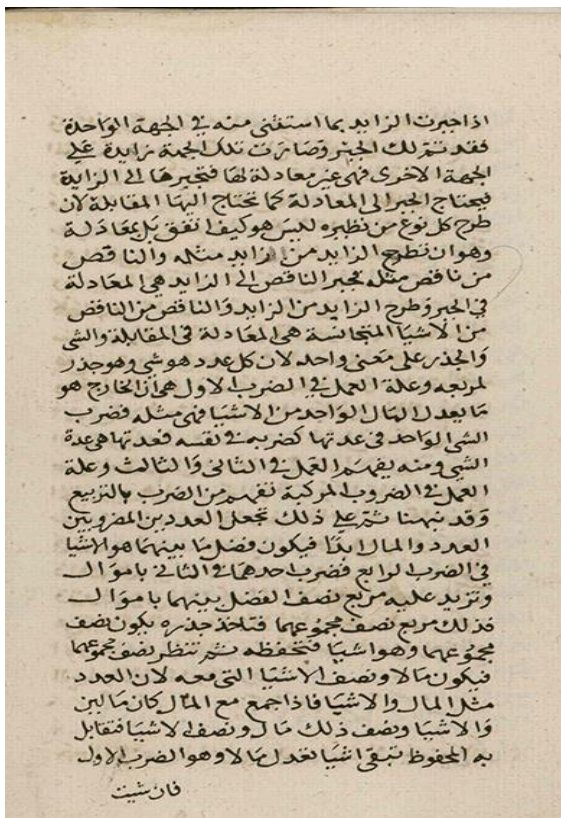 اذا جبرت الزايد بما استثنى منه في الجهة الواحدة
فقد تم لك الجبر وصارت تلك الجهة زايدة على
الجهة الاخرى فهى غير معادلة لها فتجبرها الى الزايدة
فيحتاج الجبر الى المعادلة كما تحتاج اليها المقابلة لان
طرح كل نوع من نظيره ليس هو كيف اتفق بل بمعادلة
وهو ان تطرح الزايد من الزايد مثله والناقص
من ناقص مثله فجبر الناقص الى الزايد هي المعادلة
في الجبر وطرح الزايد من الزايد والناقص من الناقص
من الاشيا المتجانسة هى المعادلة في المقابلة والشى
والجذر على معنى واحد لان كل عدد هو شى وهو جذر
لمربعه وعلة العمل في الضرب الاول هى ان الخارج هو
ما يعدل المال الواحد من الاشيا فهى مثله فضرب
الشى الواحد في عدتها كضربه في نفسه فعدتها هى عدة
الشى ومنه يفهم العمل في الثانى والثالث وعلة
العمل في الضروب المركبة تفهم من الضرب بالتربيع
وقد نبهنا ثم على ذلك تجعل العددين المضروبين
العدد والمال ابدا فيكون فضل ما بينهما هو الاشيا
في الضرب الرابع فضرب احدهما في الثانى باموال
وتزيد عليه مربع نصف الفضل بينهما باموال
فذلك مربع نصف مجموعهما فتاخذ جذره يكون نصف
مجموعهما وهو اشيا فتحفظه ثم تنظر نصف مجموعهما
فيكون مالا ونصف الاشيا التي معه لان العدد
مثل المال والاشيا فاذا جمع مع المال كان مالين
والاشيا ونصف ذلك مال ونصف الاشيا فتقابل
به المحفوظ تبقى اشيا تعدل مالا وهو الضرب الاول
فان شيت